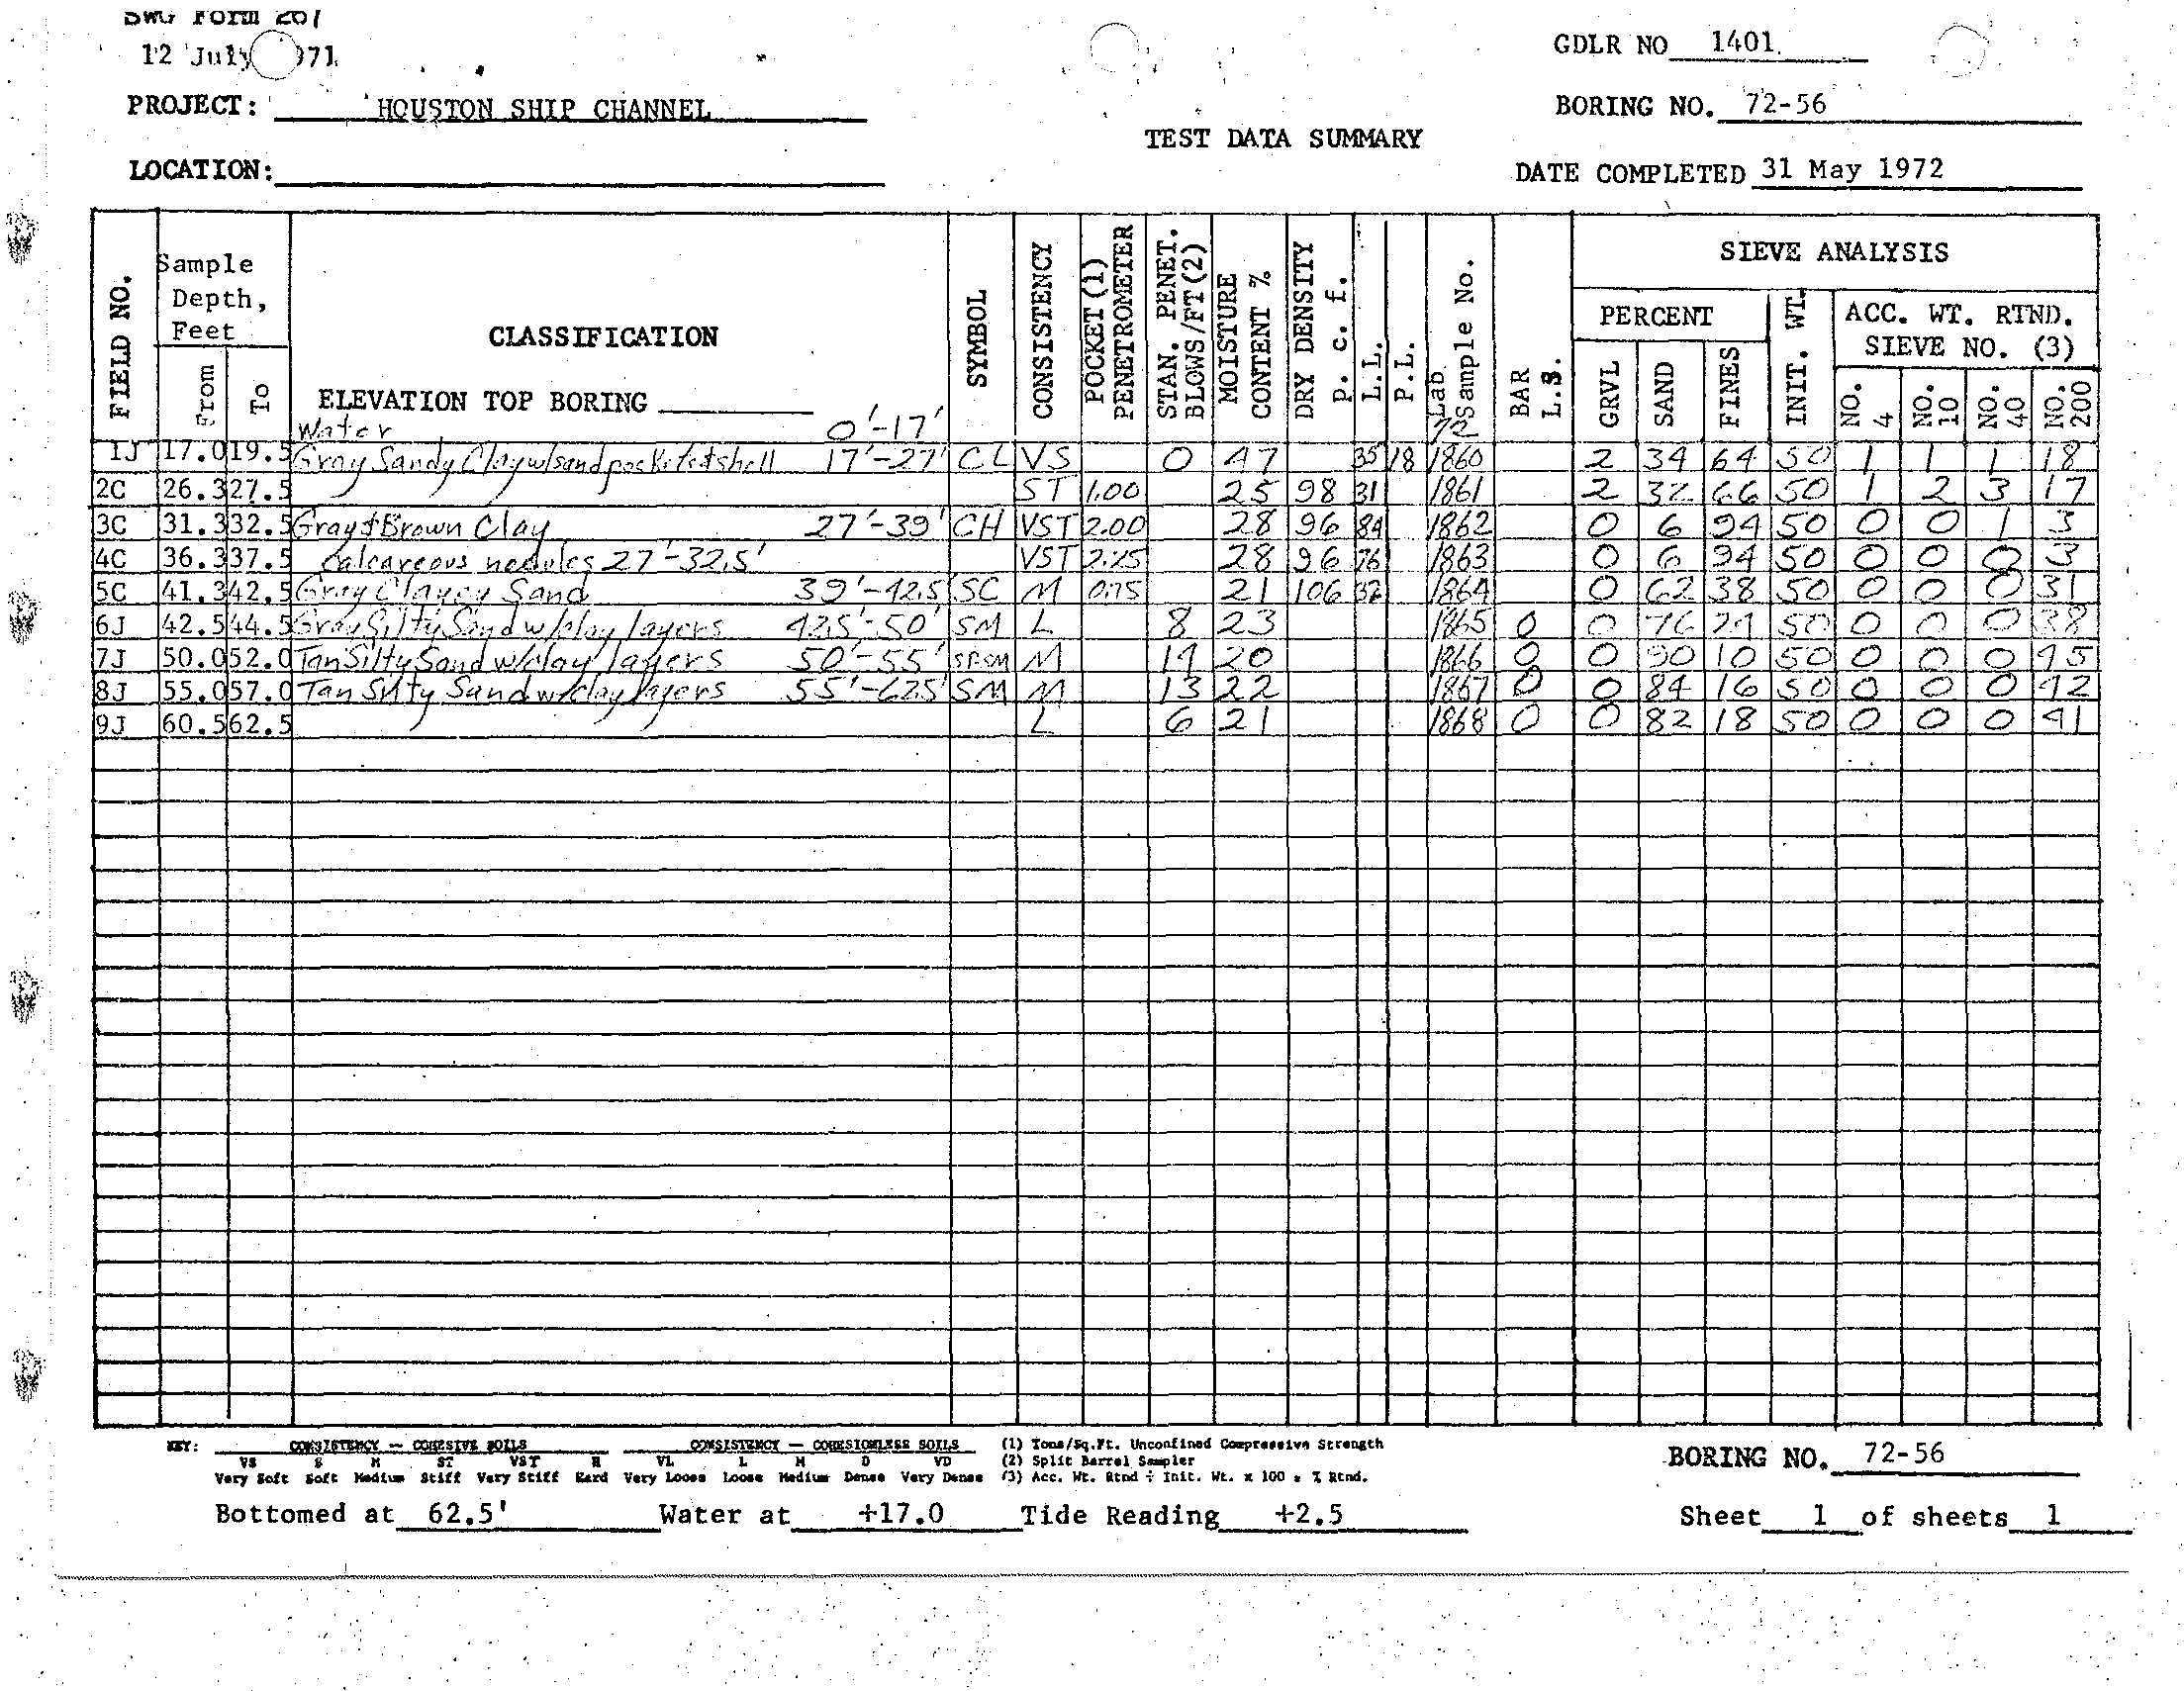 SWG Form 267
12 July 1971
GDLR NO 1401
PROJECT: HOUSTON SHIP CHANNEL
BORING NO. 72-56
TEST DATA SUMMARY
LOCATION:
DATE COMPLETED 31 May 1972
FIELD NO.
Sample Depth, Feet
From
To
CLASSIFICATION
ELEVATION TOP BORING
SYMBOL
CONSISTENCY
POCKET (1) PENETROMETER
STAN. PENET. BLOWS/FT (2)
MOISTURE CONTENT %
DRY DENSITY p. c. f.
L.L.
P.L.
Lab Sample No.
72
BAR L.S.
SIEVE ANALYSIS
PERCENT
GRVL
SAND
FINES
INIT. WT.
ACC. WT. RTND. SIEVE NO. (3)
NO. 4
NO. 10
NO. 40
NO. 200
Water 0'-17'
1J 17.0 19.5 Gray Sandy Clay w/sand pockets & shell 17'-27' CL VS 0 47 35 18 1860 2 34 64 50 1 1 1 18
2C 26.3 27.5 ST 1.00 25 98 31 1861 2 32 66 50 1 2 3 17
3C 31.3 32.5 Gray & Brown Clay 27'-39' CH VST 2.00 28 96 84 1862 0 6 94 50 0 0 1 3
4C 36.3 37.5 calcareous nodules 27'-32.5' VST 2.25 28 96 76 1863 0 6 94 50 0 0 0 3
5C 41.3 42.5 Gray Clayey Sand 39'-42.5' SC M 0.75 21 106 32 1864 0 62 38 50 0 0 0 31
6J 42.5 44.5 Gray Silty Sand w/clay layers 42.5'-50' SM L 8 23 1865 0 0 76 24 50 0 0 0 38
7J 50.0 52.0 Tan Silty Sand w/clay layers 50'-55' SP-SM M 14 20 1866 0 0 90 10 50 0 0 0 45
8J 55.0 57.0 Tan Silty Sand w/clay layers 55'-62.5' SM M 13 22 1867 0 0 84 16 50 0 0 0 42
9J 60.5 62.5 L 6 21 1868 0 0 82 18 50 0 0 0 41
KEY: CONSISTENCY — COHESIVE SOILS CONSISTENCY — COHESIONLESS SOILS (1) Tons/Sq.Ft. Unconfined Compressive Strength
VS S M ST VST H VL L M D VD (2) Split Barrel Sampler
Very Soft Soft Medium Stiff Very Stiff Hard Very Loose Loose Medium Dense Very Dense (3) Acc. Wt. Rtnd ÷ Init. Wt. x 100 = % Rtnd.
BORING NO. 72-56
Bottomed at 62.5' Water at +17.0 Tide Reading +2.5 Sheet 1 of sheets 1